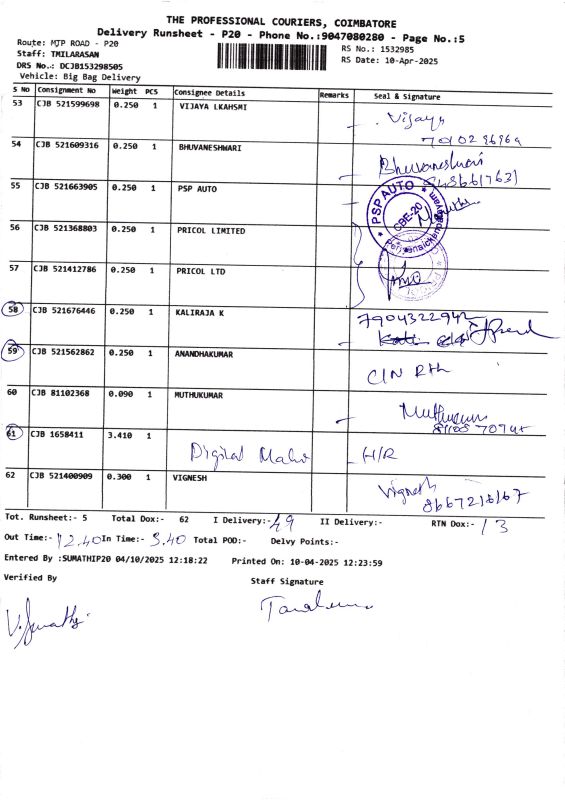 THE PROFESSIONAL COURIERS, COIMBATORE
Delivery Runsheet - P20 - Phone No.:9047080280 - Page No.:5
Route: MJP ROAD - P20
RS No.: 1532985
Staff: TMILARASAN
RS Date: 10-Apr-2025
DRS No.: DCJB153298505
Vehicle: Big Bag Delivery
S No Consignment No Weight PCS Consignee Details Remarks Seal & Signature
53 CJB 521599698 0.250 1 VIJAYA LKAHSMI Vijaya
54 CJB 521609316 0.250 1 BHUVANESHWARI Bhuvaneshwari
55 CJB 521663905 0.250 1 PSP AUTO
PSP AUTO
CBE-20
56 CJB 521368803 0.250 1 PRICOL LIMITED
57 CJB 521412786 0.250 1 PRICOL LTD
58 CJB 521676446 0.250 1 KALIRAJA K 7904322942
59 CJB 521562862 0.250 1 ANANDHAKUMAR C/N
60 CJB 81102368 0.090 1 MUTHUKUMAR
61 CJB 1658411 3.410 1 Digital H/R
62 CJB 521400909 0.300 1 VIGNESH Vignesh
8667216167
Tot. Runsheet:- 5 Total Dox:- 62 I Delivery:- 49 II Delivery:- RTN Dox:- 13
Out Time:- 12.40 In Time:- 3.40 Total POD:- Delvy Points:-
Entered By :SUMATHIP20 04/10/2025 12:18:22 Printed On: 10-04-2025 12:23:59
Verified By
Staff Signature